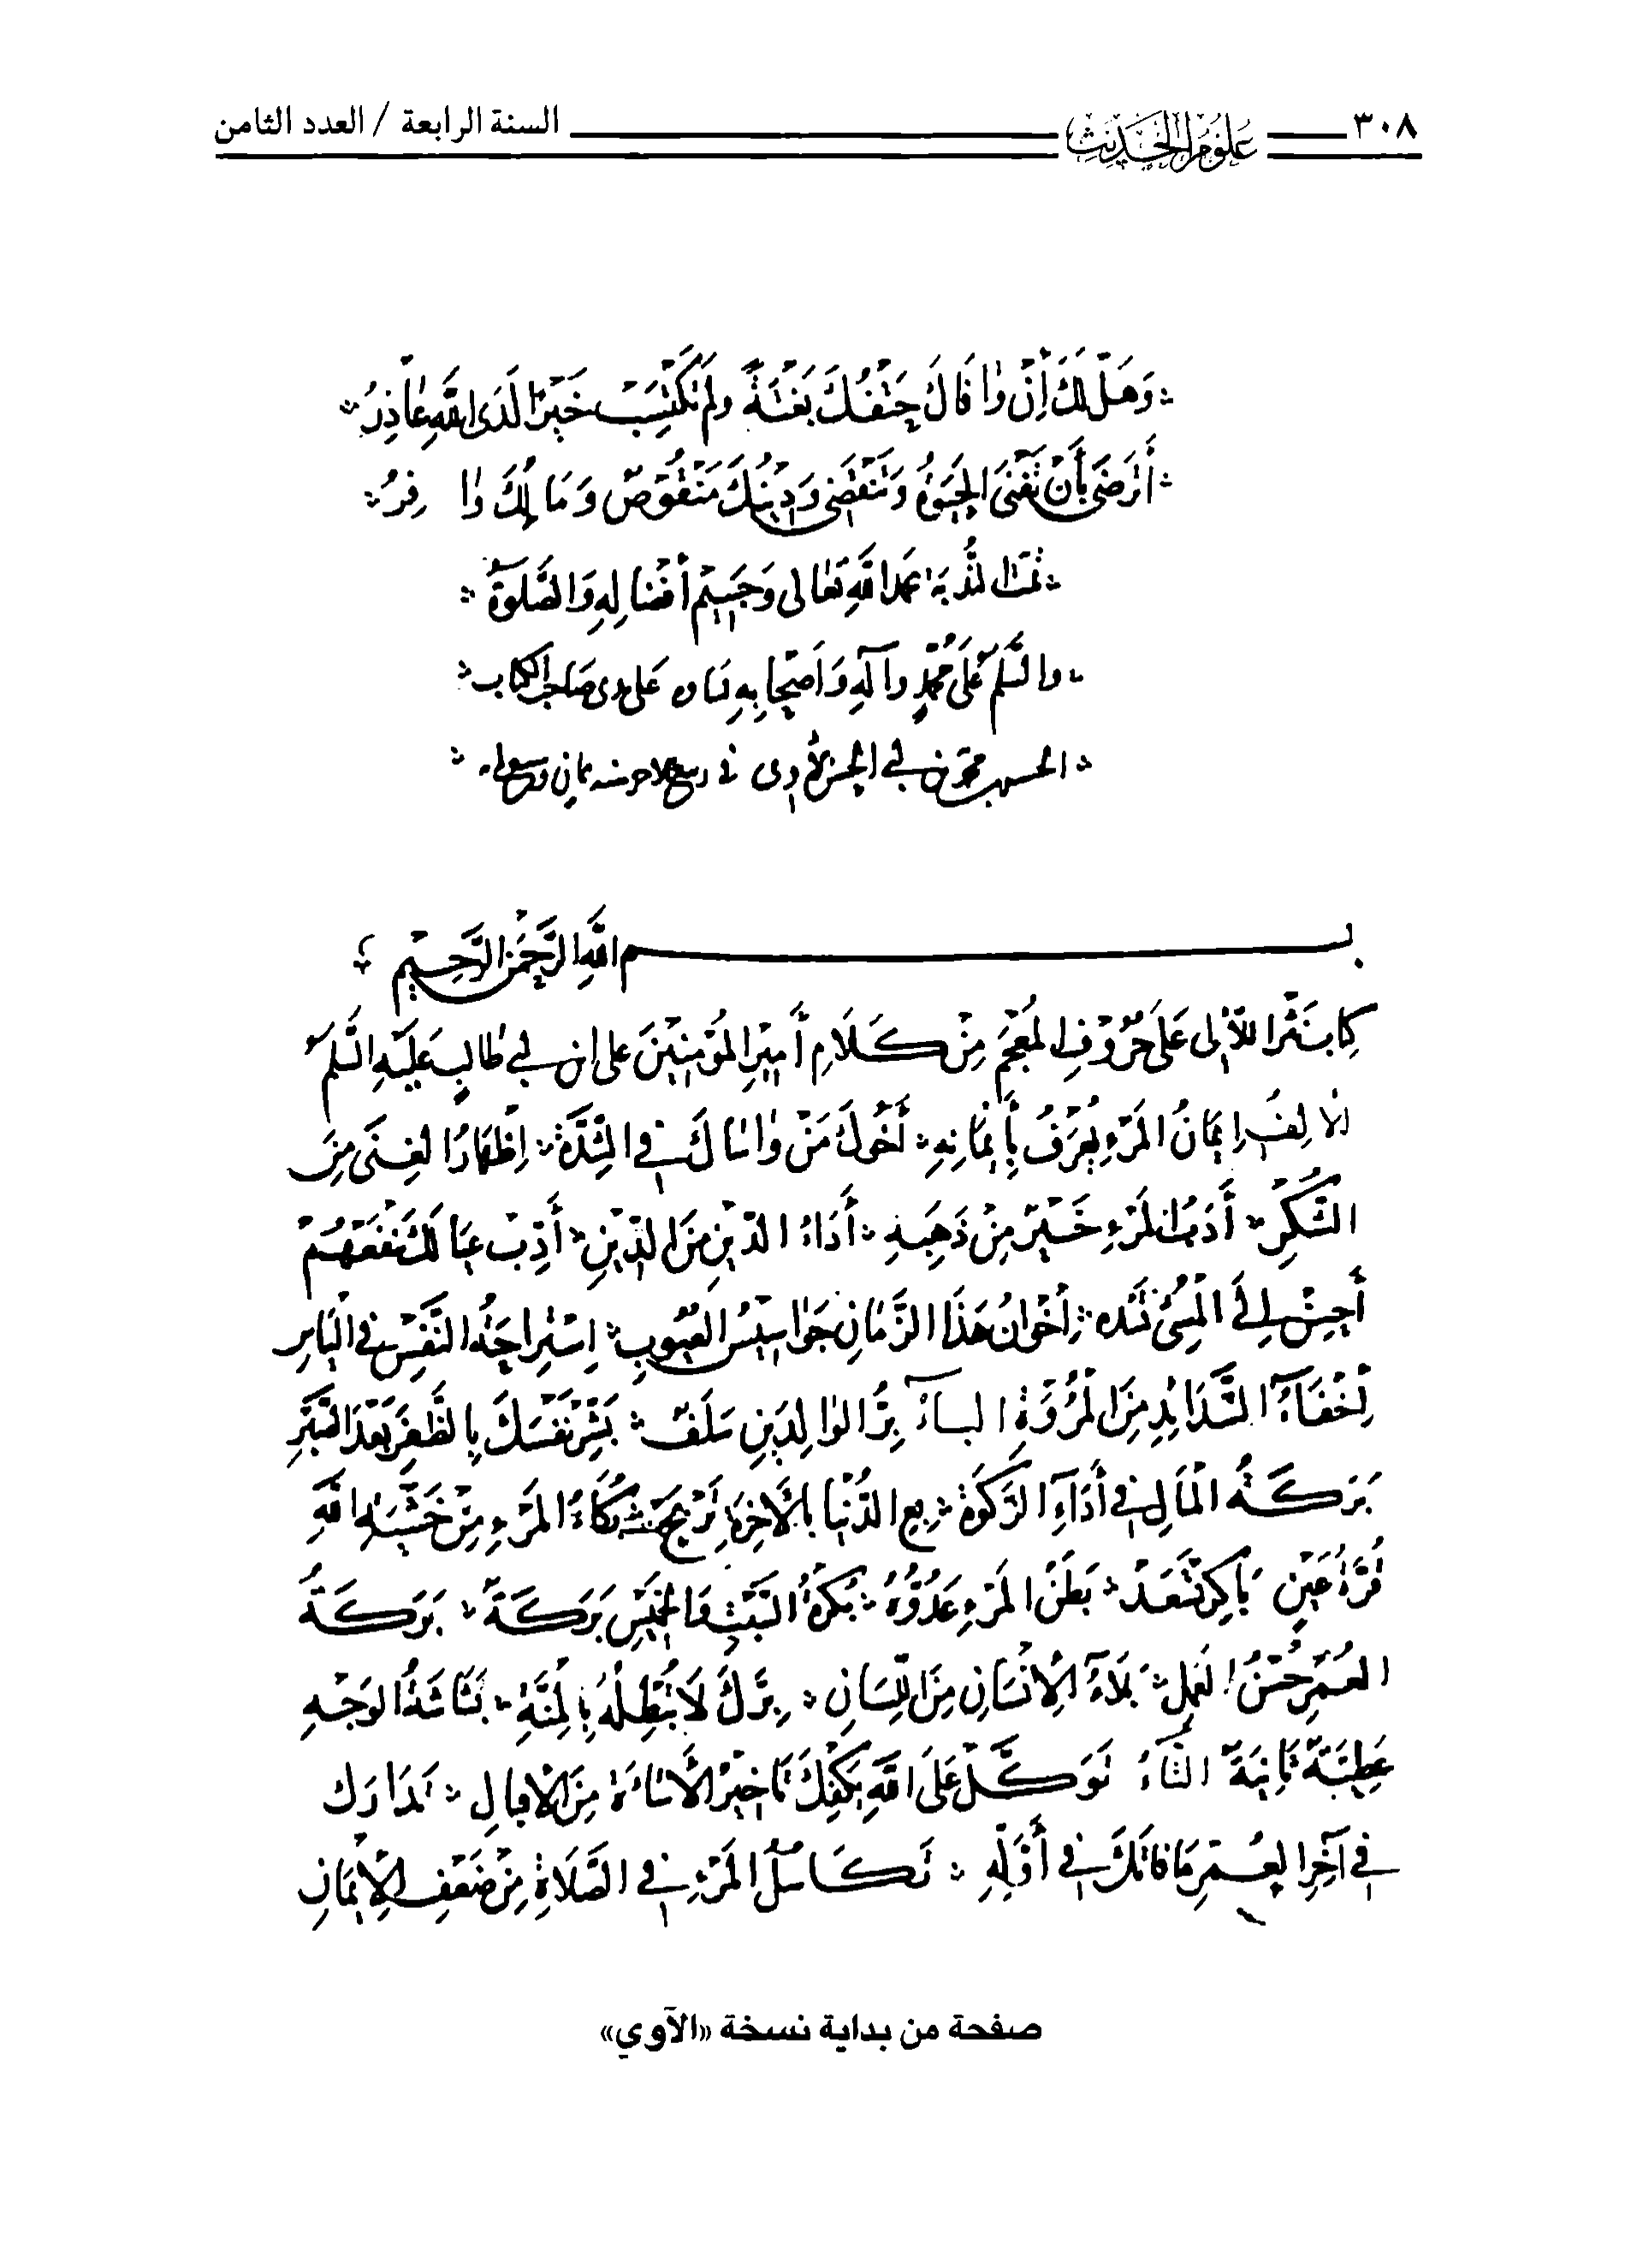 ٣٠٨ علوم الحديث السنة الرابعة / العدد الثامن
وَهَلْ لَكَ إِنْ وٰافَاكَ حَتْفُكَ بَغْتَةً وَلَمْ تَكْتَسِبْ خَيْرًا لَدَى اللهِ عٰاذِرُ
أَتَرْضَى بِأَنْ تَفْنَى الْحَيٰوةُ وَتَنْقَضِي وَدِيْنُكَ مَنْقُوصٌ وَمَالُكَ وٰافِرُ
تمت الندبة بحمد الله تَعٰالى وَجَسِيْمِ أَفْضٰالِهِ وَالصَّلٰوةُ
والسَّلٰمُ عَلَى مُحَمَّدٍ وآلِهِ وَاَصْحٰابِهِ على يدى صاحب الكتاب
الحسين بن محمد بن الحسن الآوى فى ربيع الاخر سنه ثمان وسبعمايه
بسم اللهِ الرَّحْمٰنِ الرَّحِيْمِ
كتاب نَثْرِ اللآلِى عَلَى حُرُوْفِ الْمُعْجَمِ مِنْ كَلَامِ أَمِيْرِ الْمُؤْمِنِيْنَ على ابن ابي طالِبٍ عَلَيْهِ السَّلٰمُ
الأَلِفُ إِيمَانُ الْمَرْءِ يُعْرَفُ بِأَيْمَانِهِ أَخُوكَ مَنْ وٰاسٰاكَ فِي الشِّدَّةِ إِظْهَارُ الْغِنَى مِنَ
الشُّكْرِ أَدَبُ الْمَرْءِ خَيْرٌ مِنْ ذَهَبِهِ أَدَاءُ الدَّيْنِ مِنَ الدِّيْنِ أَدِّبْ عِيَالَكَ تَنْفَعْهُمْ
أَحْسِنْ إِلَى الْمُسِيْءِ تَسُدْهُ إِخْوَانُ هَذَا الزَّمَانِ جَوٰاسِيْسُ الْعُيُوبِ اِسْتِرَاحَةُ النَّفْسِ فِي الْيَأْسِ
إِخْفَاءُ الشَّدَائِدِ مِنَ الْمُرُوَّةِ الباءُ بِرُّ الْوٰالِدَيْنِ سَلَفٌ بَشِّرْ نَفْسَكَ بِالظَّفَرِ بَعْدَ الصَّبْرِ
بَرَكَةُ الْمَالِ فِي أَدَاءِ الزَّكٰوةِ بِعِ الدُّنْيَا بِالْآخِرَةِ تَرْبَحْ بُكَاءُ الْمَرْءِ مِنْ خَشْيَةِ اللهِ
قُرَّةُ عَيْنٍ بَاكِرْ تَسْعَدْ بَطْنُ الْمَرْءِ عَدُوُّهُ بُكْرَةُ السَّبْتِ وَالْخَمِيْسِ بَرَكَةٌ بَرَكَةُ
الْعُمْرِ حُسْنُ الْعَمَلِ بَلَاءُ الْإِنْسَانِ مِنَ اللِّسَانِ بِرَّكَ لَا تُبْطِلْهُ بِالْمِنَّةِ بَشَاشَةُ الْوَجْهِ
عَطِيَّةٌ ثَانِيَةٌ التَّاءُ تَوَكَّلْ عَلَى اللهِ يَكْفِكَ تَأْخِيْرُ الْأَسَاءَةِ مِنَ الْإِقْبَالِ تَدَارَكْ
فِي آخِرِ الْعُمْرِ مَا فَاتَكَ فِي أَوَّلِهِ تَكَاسُلُ الْمَرْءِ فِي الصَّلَاةِ مِنْ ضَعْفِ الْإِيْمَانِ
صفحة من بداية نسخة «الآوي»